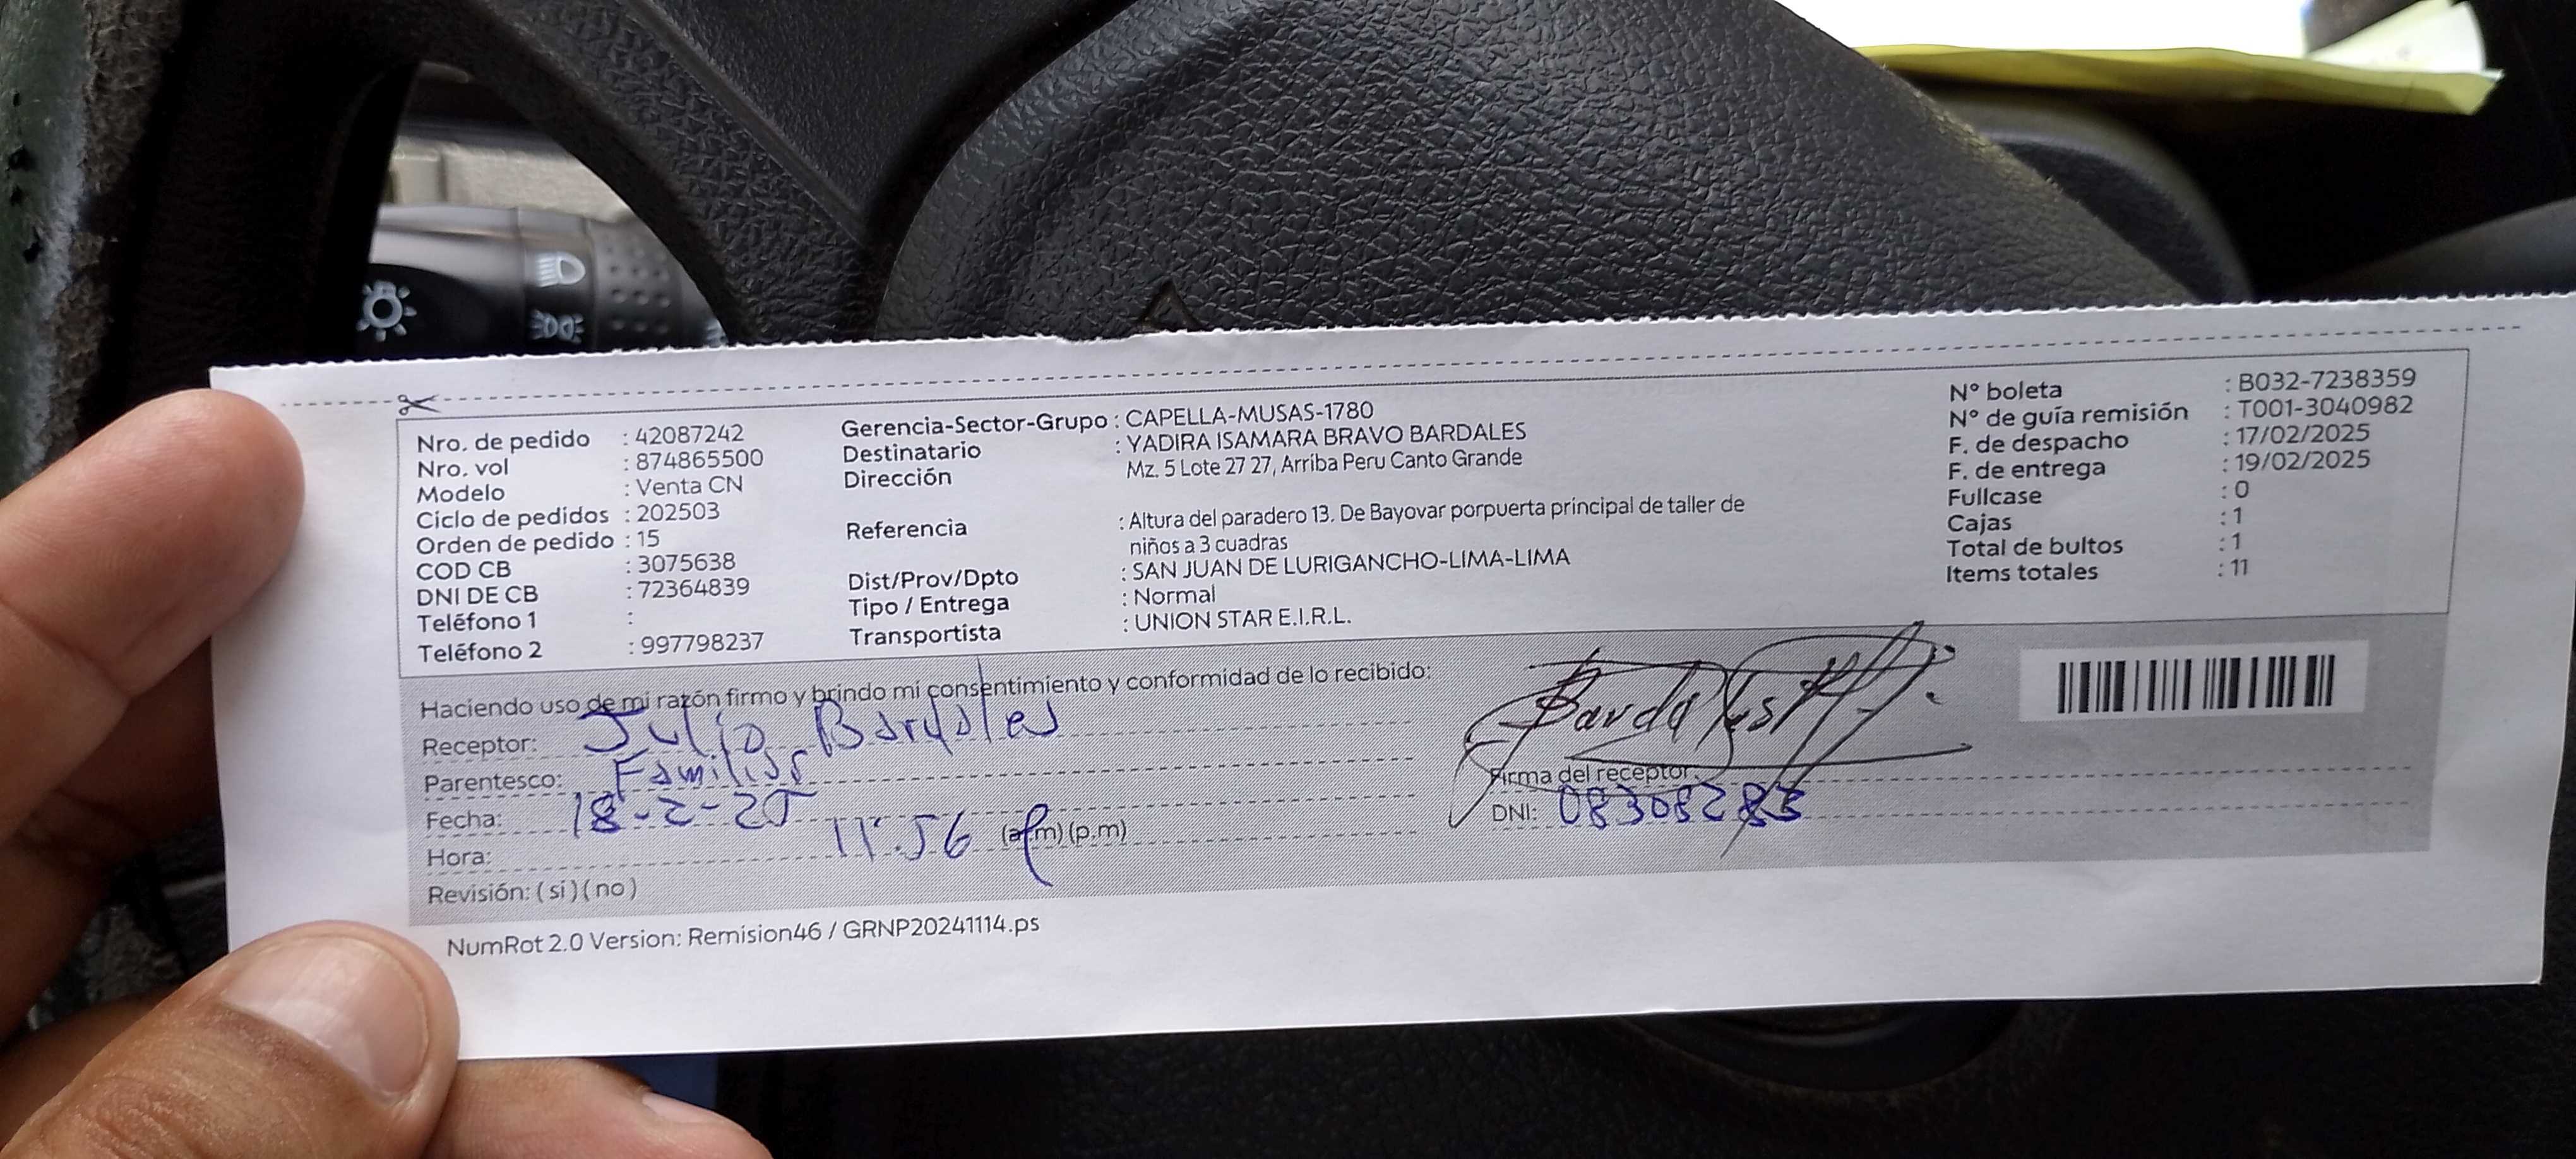 Nro. de pedido : 42087242
Nro. vol : 874865500
Modelo : Venta CN
Ciclo de pedidos : 202503
Orden de pedido : 15
COD CB : 3075638
DNI DE CB : 72364839
Teléfono 1 :
Teléfono 2 : 997798237
Gerencia-Sector-Grupo : CAPELLA-MUSAS-1780
Destinatario : YADIRA ISAMARA BRAVO BARDALES
Dirección Mz. 5 Lote 27 27, Arriba Peru Canto Grande
Referencia : Altura del paradero 13. De Bayovar porpuerta principal de taller de
niños a 3 cuadras
Dist/Prov/Dpto : SAN JUAN DE LURIGANCHO-LIMA-LIMA
Tipo / Entrega : Normal
Transportista : UNION STAR E.I.R.L.
N° boleta : B032-7238359
N° de guía remisión : T001-3040982
F. de despacho : 17/02/2025
F. de entrega : 19/02/2025
Fullcase : 0
Cajas : 1
Total de bultos : 1
Items totales : 11
Haciendo uso de mi razón firmo y brindo mi consentimiento y conformidad de lo recibido:
Receptor: Julio Bardales
Parentesco: Familiar
Fecha: 18-2-25
Hora: 11:56 (a.m) (p.m)
Revisión: ( si ) ( no )
Firma del receptor.
DNI: 08308283
NumRot 2.0 Version: Remision46 / GRNP20241114.ps